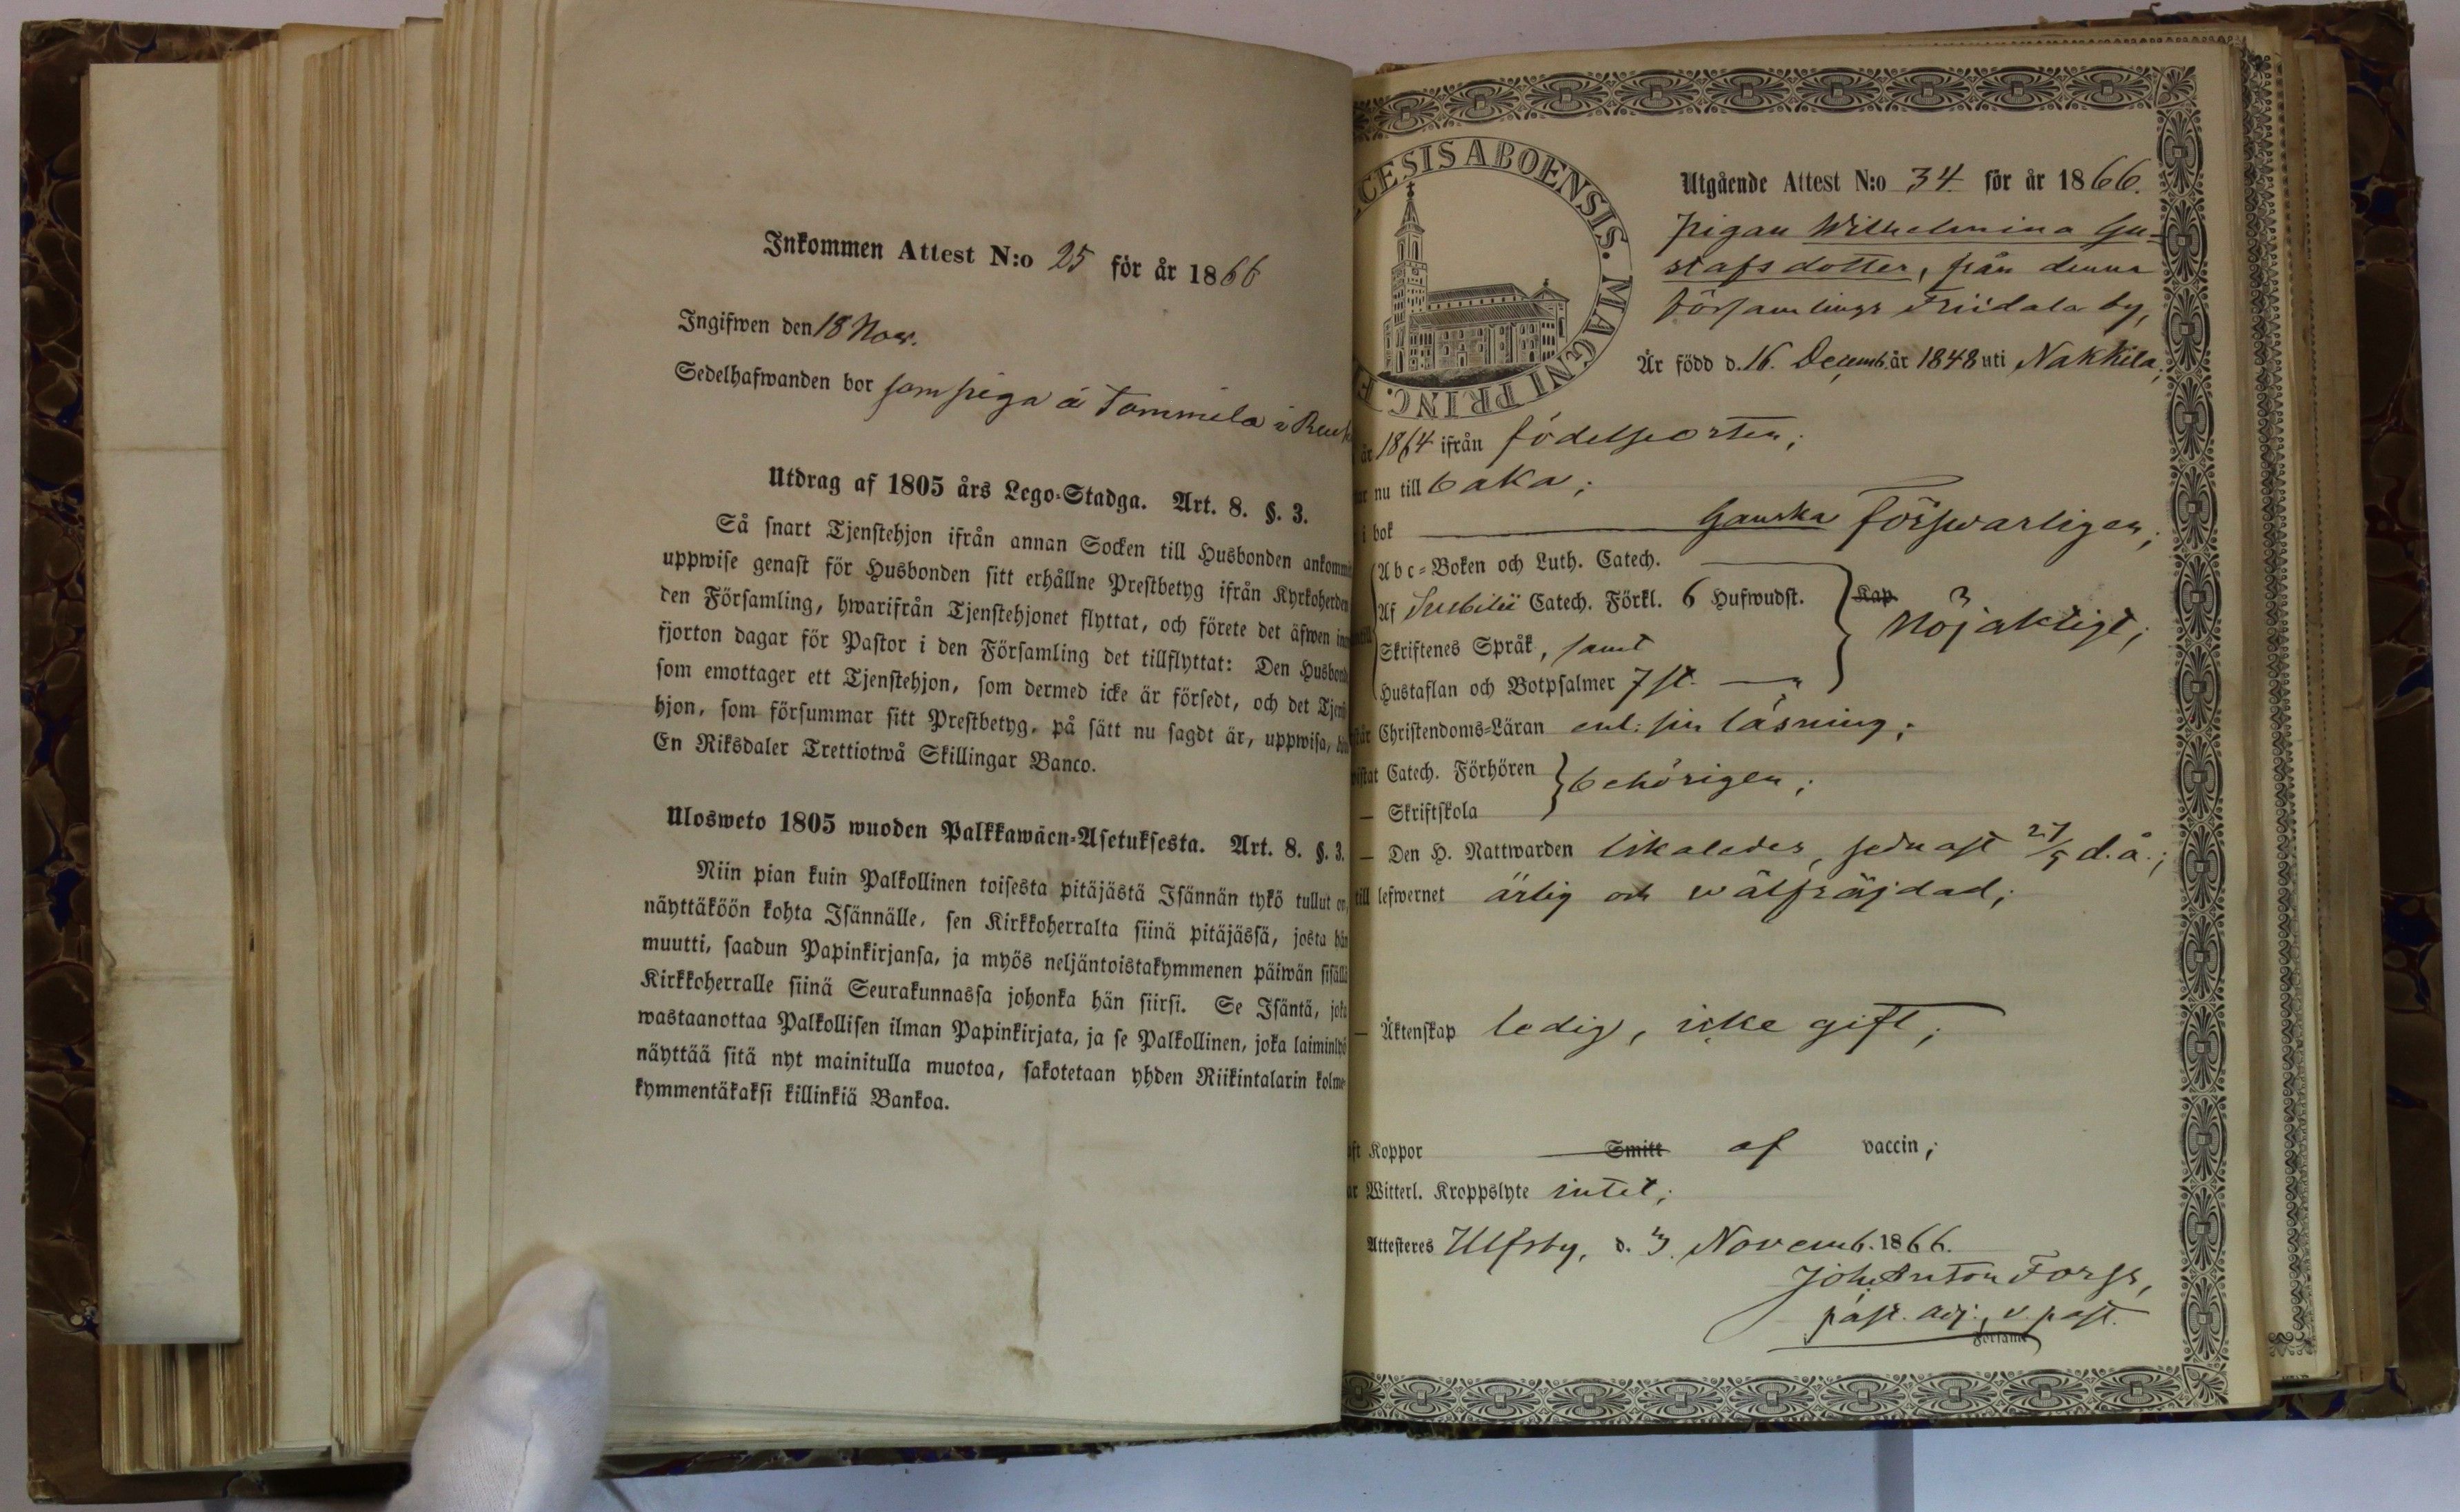 Inkommen Attest N:o 25 för år 1866
Ingifwen den 18 Nov.
Sedelhafwanden bor som piga å Tommila i
Utdrag af 1805 års Lego-Stadga. Art. 8. §. 3.
Så snart Tjenstehjon ifrån annan Socken till Husbonden ankomm
uppwise genast för Husbonden sitt erhållne Prestbetyg ifrån Kyrkoherden
den Församling, hwarifrån Tjenstehjonet flyttat, och förete det äfwen in
fjorton dagar för Pastor i den Församling det tillflyttat: Den Husbond
som emottager ett Tjenstehjon, som dermed icke är försedt, och det Tjen
hjon, som försummar sitt Prestbetyg, på sätt nu sagdt är, uppwisa,
En Riksdaler Trettiotwå Skillingar Banco.
Ulosweto 1805 wuoden Palkkawäen-Asetuksesta. Art. 8. §. 3.
Niin pian kuin Palkollinen toisesta pitäjästä Isännän tykö tullut on,
näyttäköön kohta Isännälle, sen Kirkkoherralta siinä pitäjässä, josta hän
muutti, saadun Papinkirjansa, ja myös neljäntoistakymmenen päiwän sisällä
Kirkkoherralle siinä Seurakunnassa johonka hän siirsi. Se Isäntä, joka
wastaanottaa Palkollisen ilman Papinkirjata, ja se Palkollinen, joka laiminlyö
näyttää sitä nyt mainitulla muotoa, sakotetaan yhden Riikintalarin kolme-
kymmentäkaksi killinkiä Bankoa.
CESIS ABOENSIS. MAGNI PRINC. F
Utgående Attest N:o 34 för år 1866.
Pigan Wilhelmina Gu-
stafsdotter, från denna
församlings Friidala by,
Är född d. 16. Decemb. år 1848 uti Nakkila;
år 1864 ifrån födelseorten;
nu till baka;
i bok Ganska försvarligen;
Abc-Boken och Luth. Catech.
Af Svebilii Catech. Förkl. 6 Hufwudst. Kap.
Nöjaktigt;
Skriftenes Språk, samt
Hustaflan och Botpsalmer 7 st.
Christendoms-Läran enl. sin läsning;
Catech. Förhören behörigen;
— Skriftskola
— Den H. Nattwarden likaledes, sednast 27/5 d.å.;
till lefwernet ärlig och wälfräjdad;
— Äktenskap ledig, icke gift;
Koppor Smitt af vaccin;
Witterl. Kroppslyte intet;
Attesteras Ulfsby, d. 3. Novemb. 1866.
Joh. Anton Forss,
past. adj., v. past.